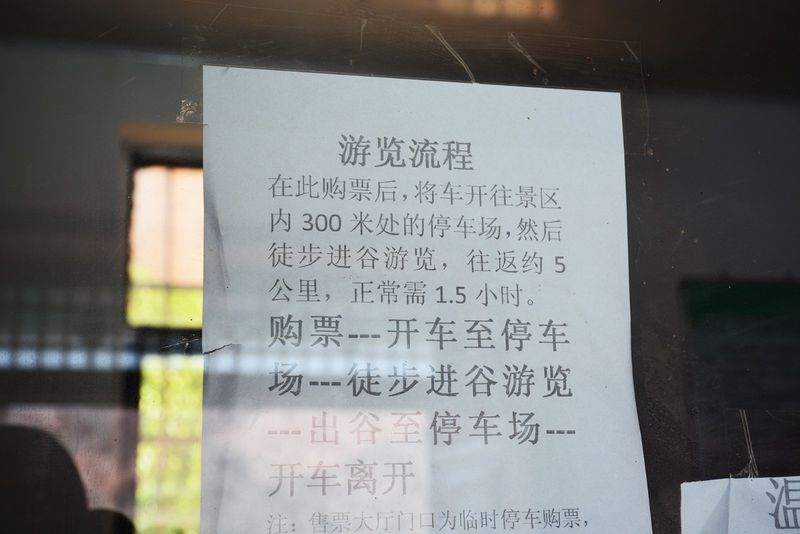 游览流程
在此购票后，将车开往景区
内 300 米处的停车场，然后
徒步进谷游览，往返约 5
公里，正常需 1.5 小时。
购票---开车至停车
场---徒步进谷游览
---出谷至停车场---
开车离开
注：售票大厅门口为临时停车购票，
温